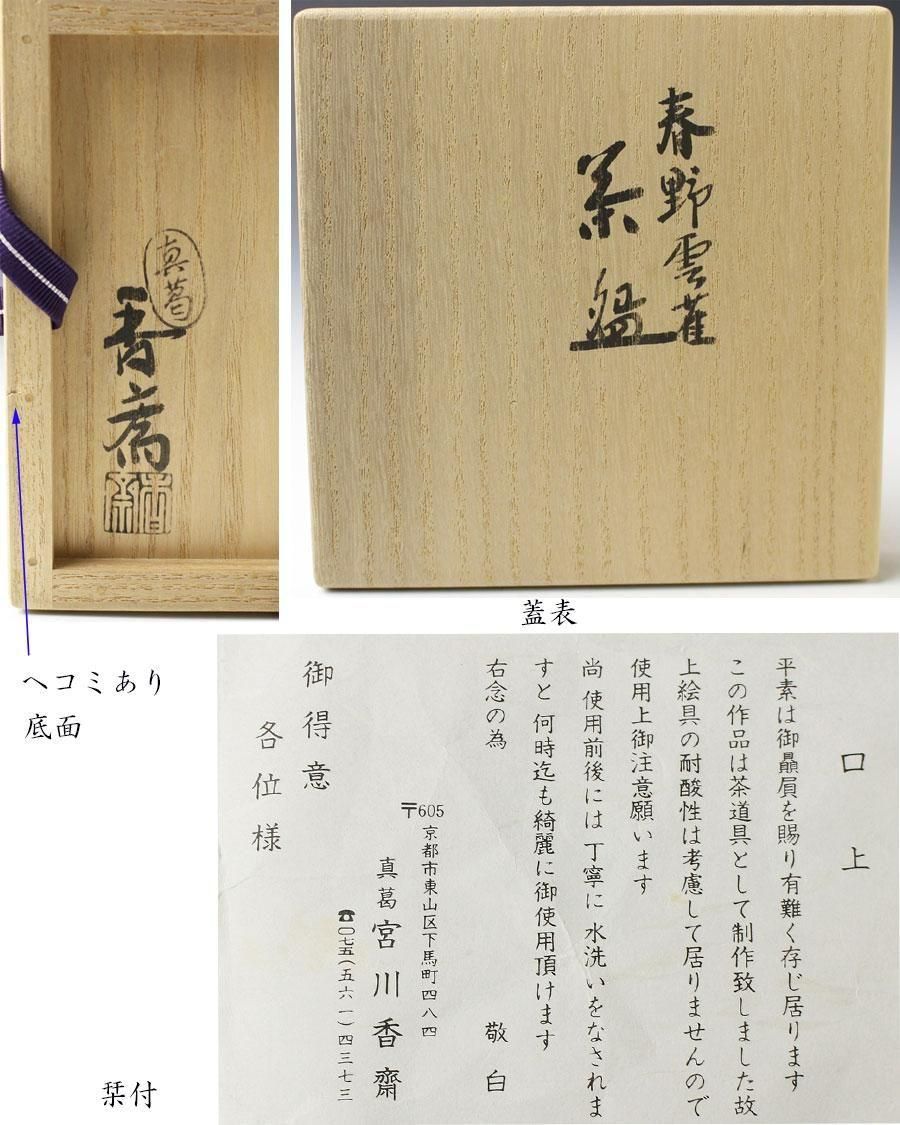 春野雲雀
茶盌
真葛
香斎
蓋表
ヘコミあり
底面
口上
平素は御贔屓を賜り有難く存じ居ります
この作品は茶道具として制作致しました故
上絵具の耐酸性は考慮して居りませんので
使用上御注意願います
尚 使用前後には 丁寧に 水洗いをなされま
すと 何時迄も綺麗に御使用頂けます
右念の為 敬白
御得意
各位様
〒605 京都市東山区下馬町四八四
真葛 宮川香齋
☎〇七五(五六一)四三七三
栞付